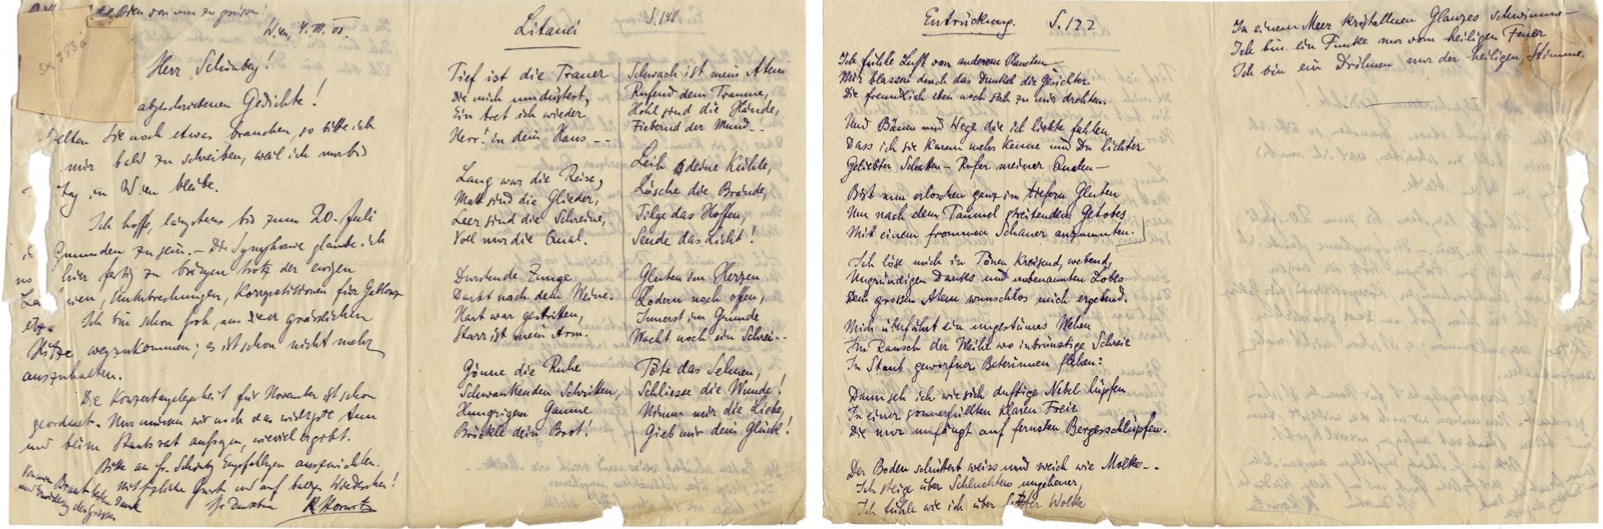 Wien, 4. VII. 08
Herr Schönberg!
abgeschriebenen Gedichte!
Sie noch etwas brauchen, so bitte ich
mir bald zu schreiben, weil ich nur bis
Tag in Wien bleibe.
Ich hoffe, längstens bis zum 20. Juli
Gmunden zu sein. – Die Symphonie glaube ich
hier fertig zu bringen trotz der ewigen
Unterbrechungen, Korrepetitionen für
etz.
Ich bin schon froh, aus der grässlichen
Hitze wegzukommen; es ist schon nicht mehr
auszuhalten.
Die Konzertangelegenheit für November ist schon
geordnet. Nur müssen wir noch das
und beim Staats anfragen, wieviel
Bitte an Fr. Schönbg Empfehlungen auszurichten.
Mit herzliche Grüße und auf baldiges Wiedersehen!
Ihr K Horwitz
von meiner Braut besten Dank
und Erwiderung der Grüsse
Litanei S. 148
Tief ist die Trauer
Die mich umdüstert,
Ein tret ich wieder
Herr! in dein Haus --
Lang war die Reise,
Matt sind die Glieder,
Leer sind die Schreine,
Voll nur die Qual.
Durstende Zunge
Darbt nach dem Weine.
Hart war gestritten,
Starr ist mein Arm.
Gönne die Ruhe
Schwankenden Schritten,
Hungrigem Gaume
Bröckle dein Brot!
Schwach ist mein Atem
Rufend dem Traume,
Hohl sind die Hände,
Fiebernd der Mund --
Leih deine Kühle,
Lösche die Brände,
Tilge das Hoffen,
Sende das Licht!
Gluten im Herzen
Lodern noch offen,
Innerst im Grunde
Wacht noch ein Schrei --
Töte das Sehnen,
Schliesse die Wunde!
Nimm mir die Liebe,
Gieb mir dein Glück!
Entrückung. S. 122
Ich fühle Luft von anderem Planeten
Mir blassen durch das Dunkel die Gesichter
Die freundlich eben noch sich zu mir drehten.
Und Bäum und Wege die ich liebte fahlen
Dass ich sie kaum mehr kenne und Du lichter
Geliebter Schatten – Rufer meiner Qualen –
Bist nun erloschen ganz in tiefern Gluten
Um nach dem Taumel streitenden Getobes
Mit einem frommen Schauer anzumuten.
Ich löse mich in Tönen, kreisend, webend,
Ungründigen Danks und unbenamten Lobes
Dem grossen Atem wunschlos mich ergebend.
Mich überfährt ein ungestümes Wehen
Im Rausch der Weihe wo inbrünstige Schreie
In Staub geworfner Beterinnen flehen:
Dann seh ich wie sich duftige Nebel lüpfen
In einer sonnerfüllten klaren Freie
Die nur umfängt auf fernsten Bergesschlüpfen.
Der Boden schüttert weiss und weich wie Molke --
Ich steige über Schluchten ungeheuer,
Ich fühle wie ich über letzter Wolke
In einem Meer kristallnen Glanzes schwimme –
Ich bin ein Funke nur vom heiligen Feuer
Ich bin ein Dröhnen nur der heiligen Stimme.